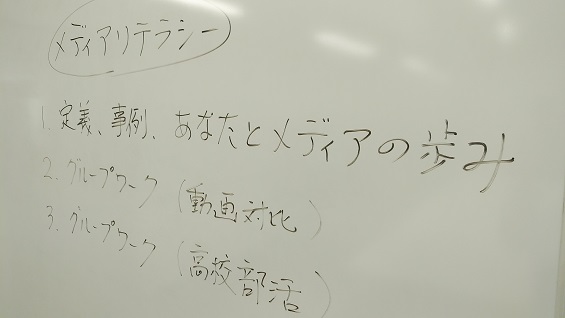 メディアリテラシー
1. 定義、事例、あなたとメディアの歩み
2. グループワーク (動画対比)
3. グループワーク (高校部活)